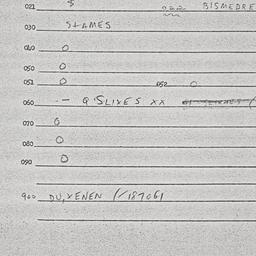 021 $ 022 BISMEDRE
030 STAMES
040 0
050 0
051 0 052 0
060 -- Q'SLIXES XX
070 0
080 0
090 0
900 DU,XENEN (/18706)